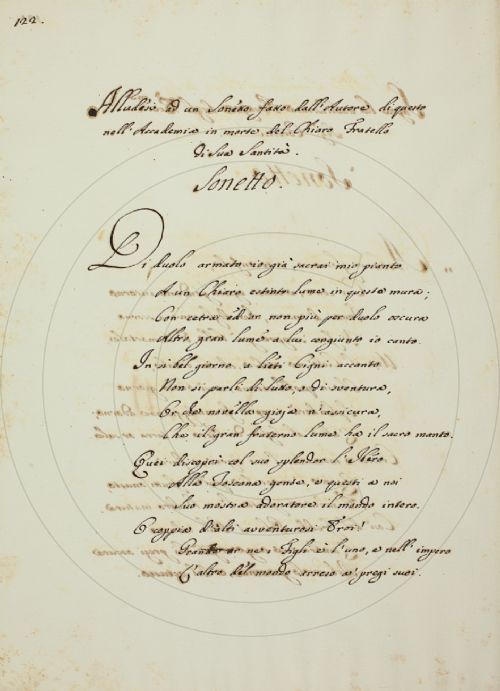 122.
Alludesi ad un Sonetto fatto dall'Autore di questo
nell'Accademia in morte del Chiaro Fratello
di Sua Santità.
Sonetto.
Di duolo armato io già sacrai mio pianto
A un Chiaro estinto lume in queste mura;
Con cetra or non più per duolo oscura
Altro gran lume a lui congiunto io canto.
In sì bel giorno a lieti Cigni accanto
Non si parli di lutto, o di sventura,
Or che novella gioja n'assicura,
Che il gran fraterno lume ha il sacro manto.
Quei discoprì col suo splendor l'Vero
Alla Toscana gente, e questi a noi
Suo mostra adoratore il mondo intero.
O coppia d'alti avventurosi Eroi!
Grande ne Figli è l'uno, e nell'impero
L'altro del mondo arreso a' pregi suoi.